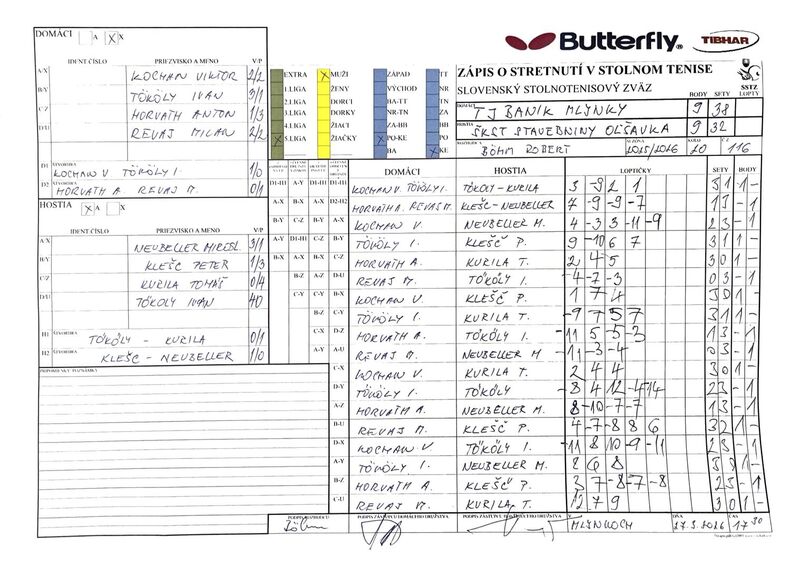 DOMÁCI A X
Butterfly TIBHAR
ZÁPIS O STRETNUTÍ V STOLNOM TENISE
SLOVENSKÝ STOLNOTENISOVÝ ZVÄZ
SSTZ
BODY SETY LOPTY
DOMÁCI TJ BANÍK MLYNKY 9 38
HOSTIA ŠKST STAVEBNINY OĽŠAVKA 9 32
BÖHM ROBERT 2025/2026 20 116
IDENT ČÍSLO PRIEZVISKO A MENO V/P
A/X KOCHAN VIKTOR 2/2
B/Y TÖKÖLY IVAN 3/1
C/Z HORVATH ANTON 1/3
D/U REVAJ MILAN 2/2
D1 ŠTVORHRA KOCHAN V. TÖKÖLY I. 1/0
D2 HORVATH A REVAJ M. 0/1
HOSTIA X A
IDENT ČÍSLO PRIEZVISKO A MENO V/P
A/X NEUBELLER MIROSL. 3/1
B/Y KLEŠČ PETER 1/3
C/Z KURILA TOMÁŠ 0/4
D/U TÖKOLY IVAN 40
H1 ŠTVORHRA TÖKÖLY - KURILA 0/1
H2 ŠTVORHRA KLEŠČ - NEUBELLER 1/0
PRIPOMIENKY POZNÁMKY
EXTRA X MUŽI ZÁPAD TT
1.LIGA ŽENY VÝCHOD NR
2.LIGA DORCI BA-TT TN
3.LIGA DORKY NR-TN ZA
4.LIGA ŽIACI ZA-BB BB
X 5.LIGA ŽIAČKY X PO-KE PO
BA X KE
DOMÁCI HOSTIA LOPTIČKY SETY BODY
D1-H1 A-Y D1-H1 D1-H1 KOCHAN V. TÖKÖLY I. TÖKÖLY - KURILA 3 -9 2 1 3 1 1 -
A-X B-X A-X D2-H2 HORVATH A. REVAJ M. KLEŠČ - NEUBELLER 7 -9 -9 -7 1 3 - 1
B-Y C-Z B-Y A-X KOCHAN V. NEUBELLER M. 4 -3 3 -11 -9 2 3 - 1
A-Y D1-H1 C-Z B-Y TÖKÖLY I. KLEŠČ P. 9 -10 6 7 3 1 1 -
B-X A-X A-Y C-Z HORVATH A. KURILA T. 2 4 5 3 0 1 -
B-Z A-Z D-U REVAJ M. TÖKÖLY I. -4 -7 -3 0 3 - 1
C-Y C-Y B-X KOCHAN V. KLEŠČ P. 1 7 4 3 0 1 -
B-Z C-Y TÖKÖLY I. KURILA T. -9 7 5 7 3 1 1 -
C-X D-Z HORVATH A. TÖKÖLY I. -11 5 -5 -3 1 3 - 1
A-Y A-U REVAJ M. NEUBELLER M -11 -3 -4 0 3 - 1
C-X KOCHAN V. KURILA T. 2 4 4 3 0 1 -
D-Y TÖKÖLY I. TÖKÖLY -8 4 12 -4 -14 2 3 - 1
A-Z HORVATH A. NEUBELLER M. 8 -10 -7 -7 1 3 - 1
B-U REVAJ M. KLEŠČ P. 4 -7 -8 8 6 3 2 1 -
D-X KOCHAN V. TÖKÖLY I. -11 8 10 -9 -11 2 3 - 1
A-Y TÖKÖLY I. NEUBELLER M. 2 6 8 3 0 1
B-Z HORVATH A. KLEŠČ P. 3 7 -8 -7 -8 2 3 - 1
C-U REVAJ M. KURILA T. 12 7 9 3 0 1 -
PODPIS ROZHODCU PODPIS ZÁSTUPCU DOMÁCEHO DRUŽSTVA V DŇA ČAS
Böhm 27.3.2026 17 30